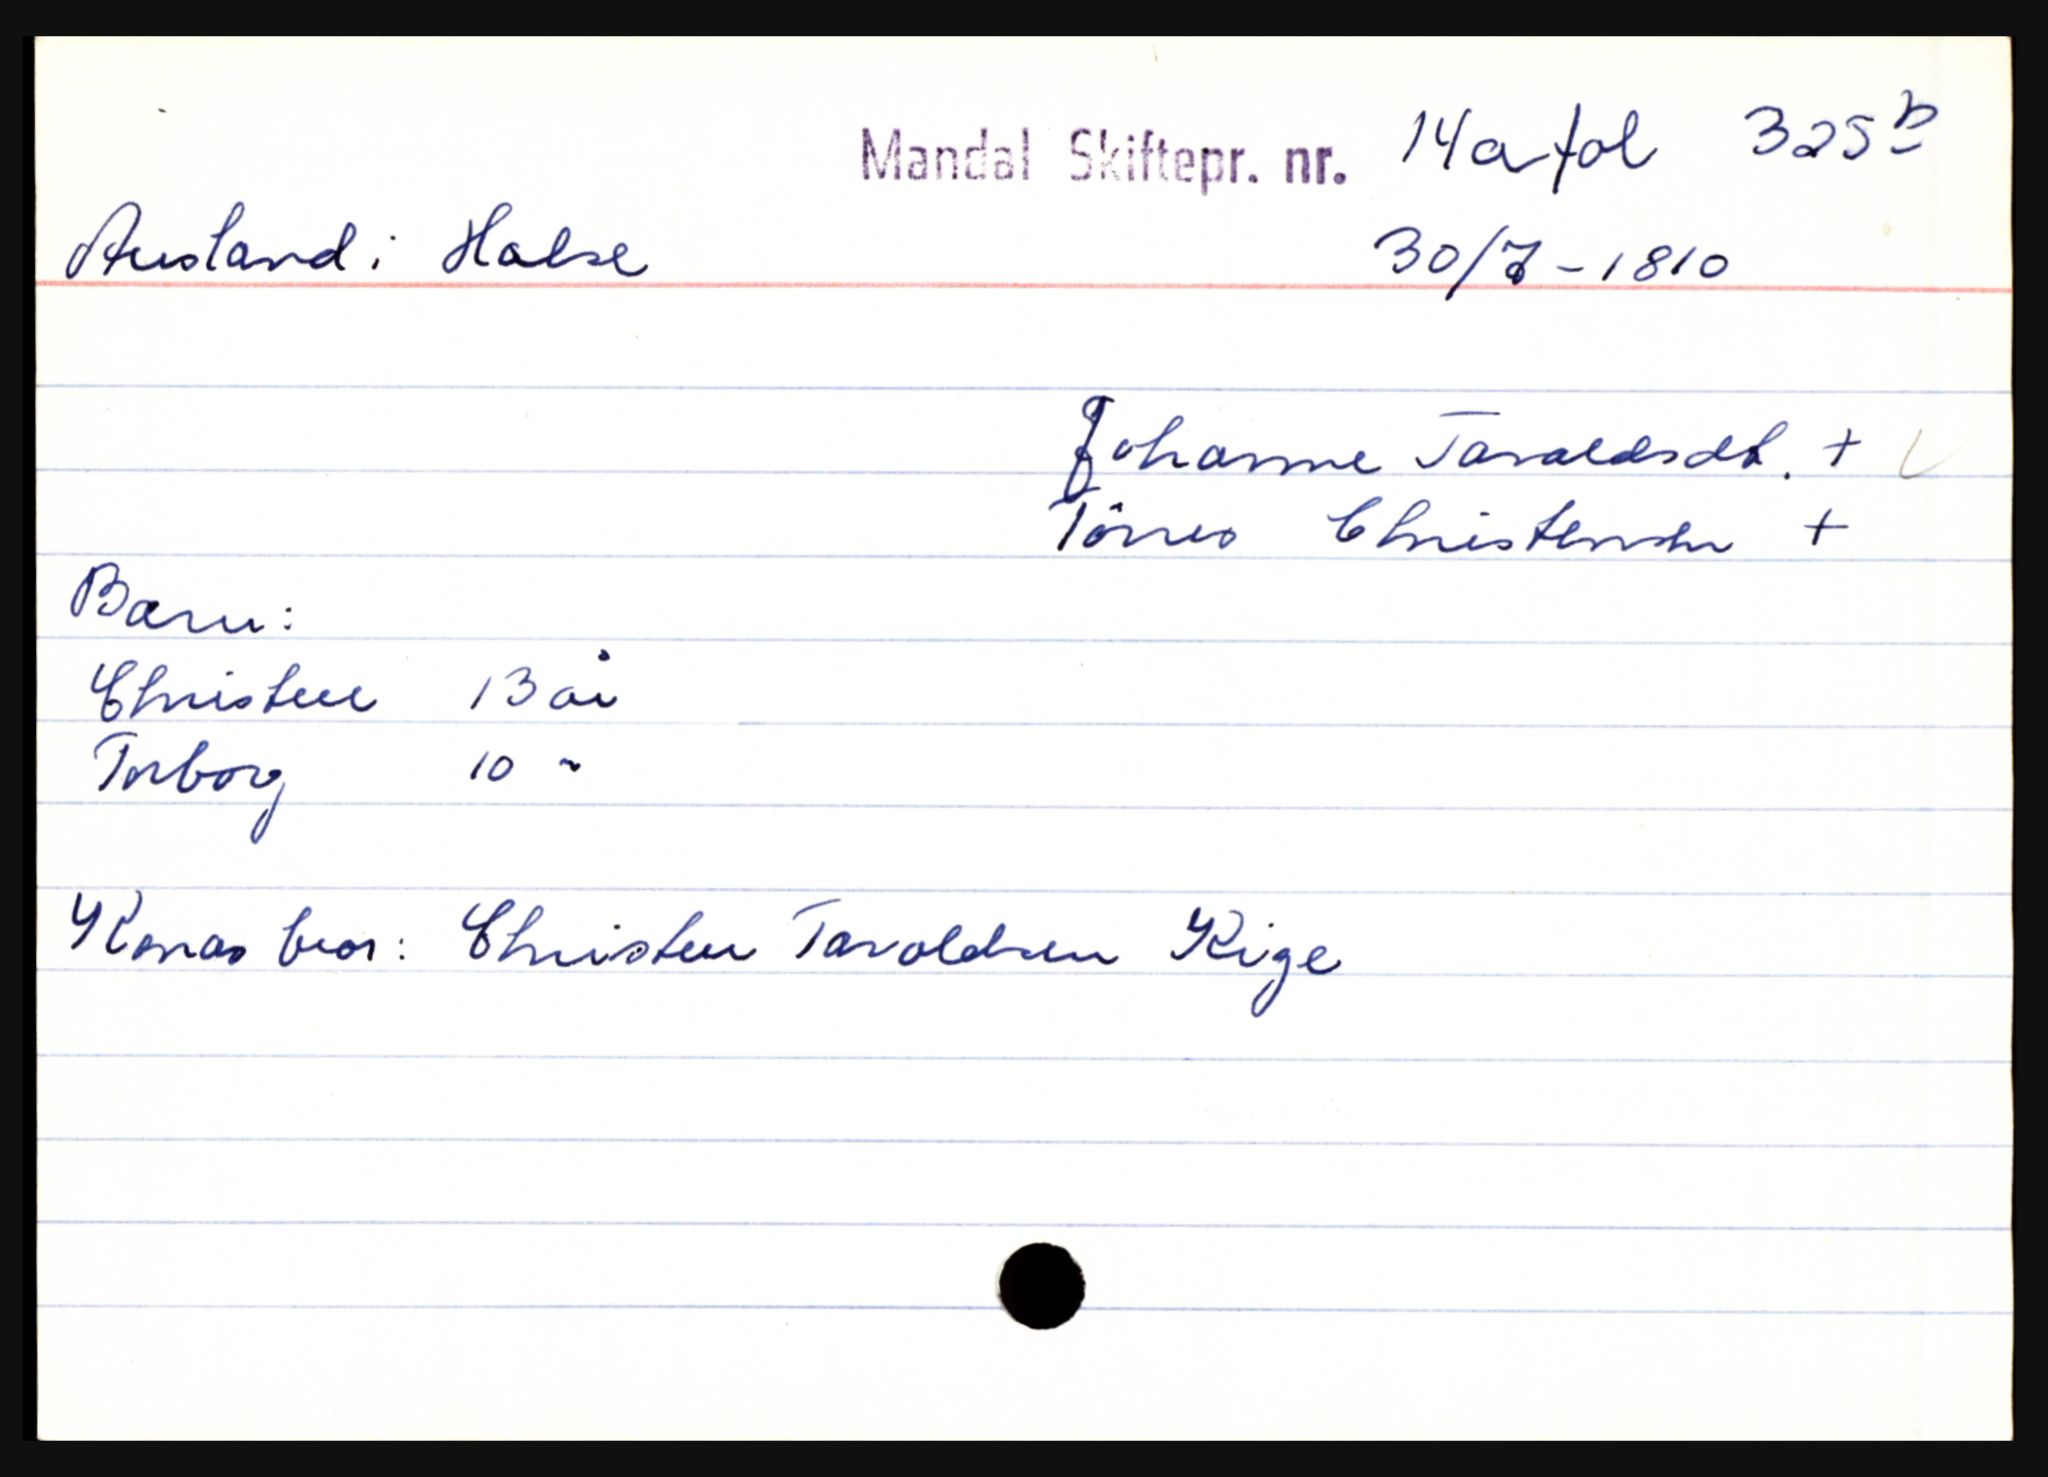 Mandal Skiftepr. nr. 14a fol 325b
Ausland i Halse 30/7-1810
Johanne Tarvaldsdt. +
Tönnes Christensen +
Barn:
Christen 13 år
Torborg 10 "
Konas bror: Christen Tarvoldsen Kige